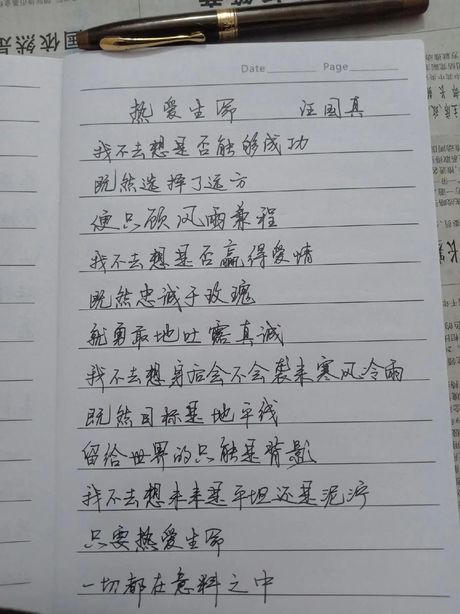 国依然是
Date Page
热爱生命 汪国真
我不去想是否能够成功
既然选择了远方
便只顾风雨兼程
我不去想是否赢得爱情
既然忠诚于玫瑰
就勇敢地吐露真诚
我不去想身后会不会袭来寒风冷雨
既然目标是地平线
留给世界的只能是背影
我不去想未来是平坦还是泥泞
只要热爱生命
一切都在意料之中